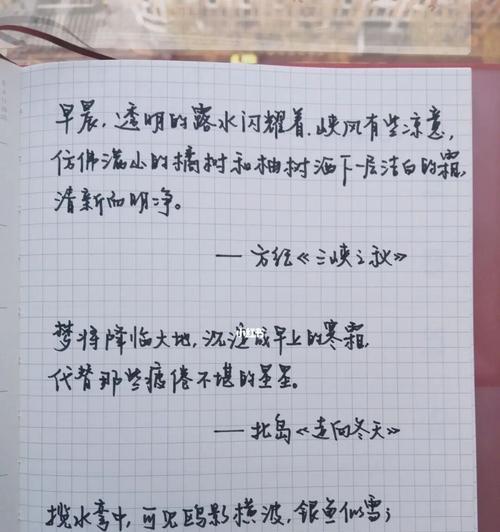 早晨，透明的露水闪耀着，峡风有些凉意，
仿佛满山的橘树和柚树洒下一层洁白的霜，
清新而明净。
——方纪《三峡之秋》
小红书
梦将降临大地，沉淀成早上的寒霜，
代替那些疲倦不堪的星星。
——北岛《走向冬天》
揽水弯中，可见鸥影横波，银鱼似雪；